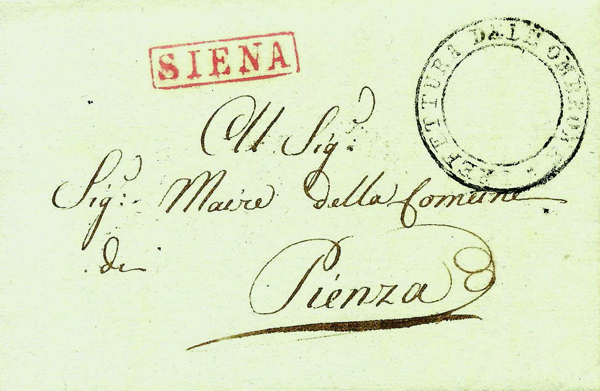 SIENA
PREFETTURA DELL'OMBRONE
All Sig:
Sig: Maire della Comune
di
Pienza